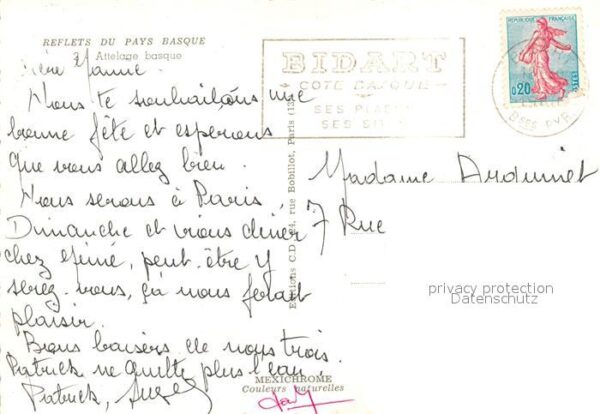 REFLETS DU PAYS BASQUE
Attelage basque
Nous te souhaitons une
bonne fête et espérons
que vous allez bien.
Nous serons à Paris
Dimanche et irons diner
chez peut-être y
serez-vous, ça nous ferait
plaisir.
Bons baisers de nous trois.
Patrick ne quitte plus l'eau.
Patrick,
BIDART
COTE BASQUE
SES PLAGES
SES
REPUBLIQUE FRANÇAISE
0,20
POSTES
Bses PYR
Editions C.D. 24, rue Bobillot, Paris (13
MEXICHROME
Couleurs naturelles
Madame Arduinet
7 Rue
privacy protection
Datenschutz